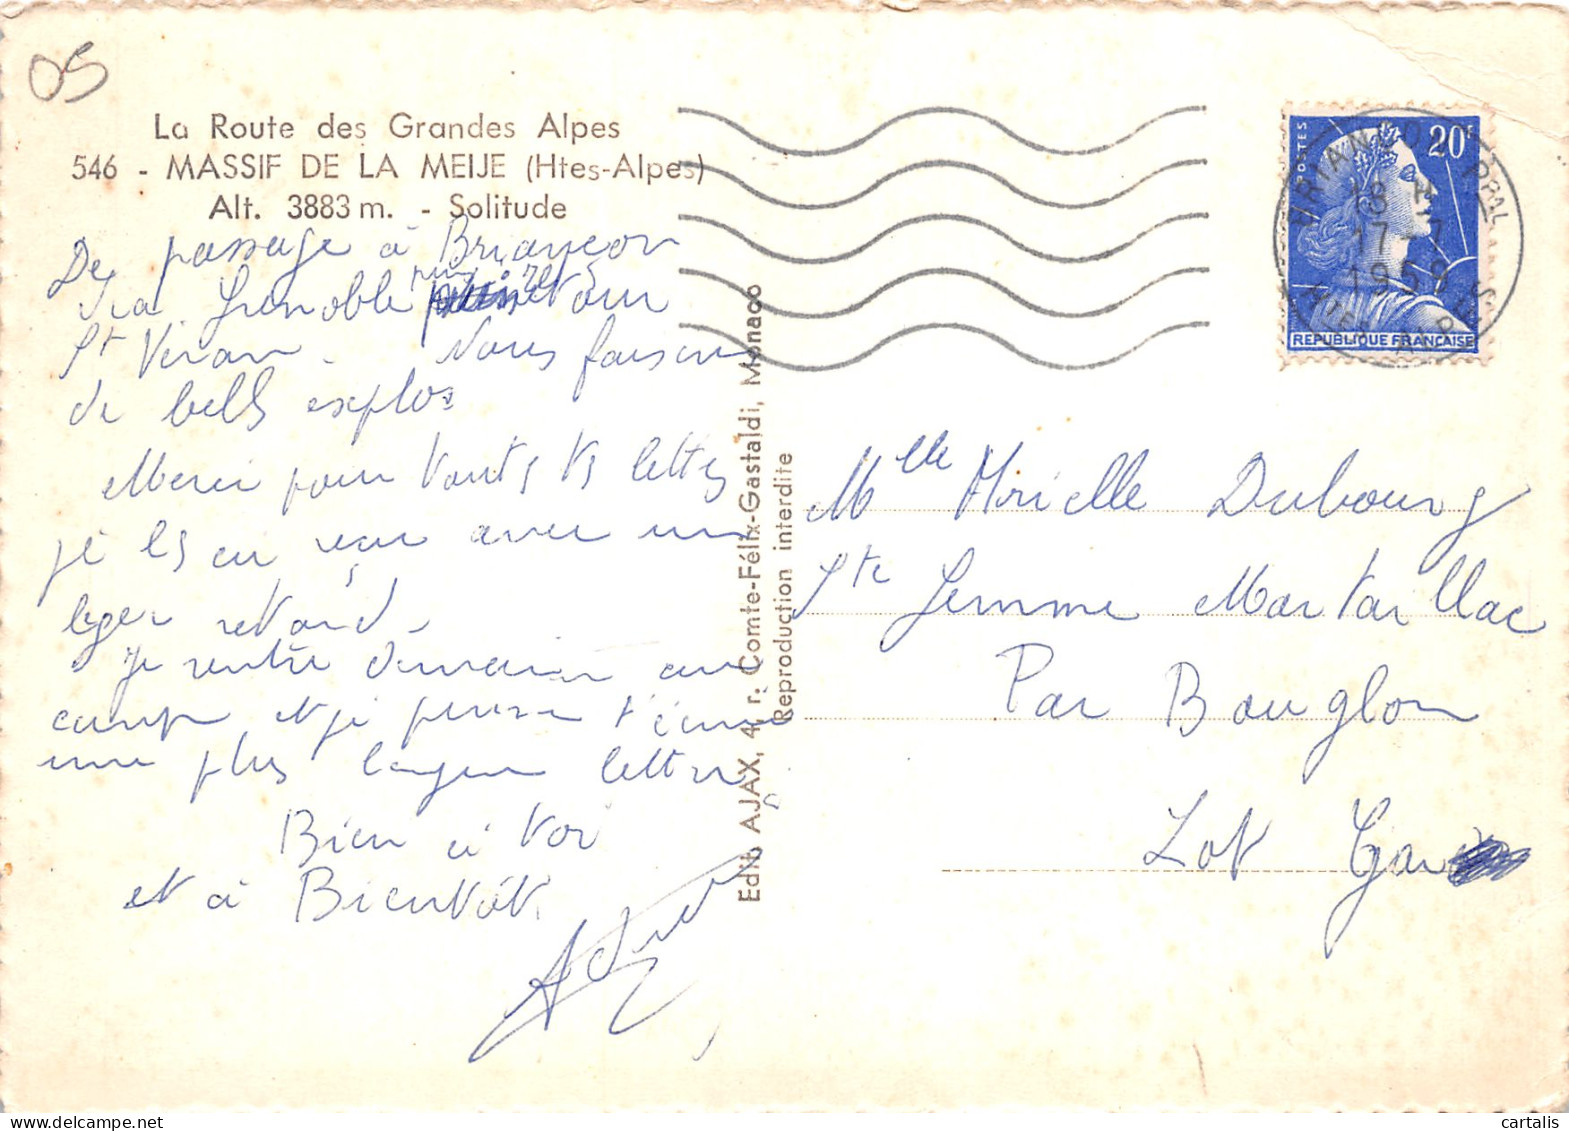 05
La Route des Grandes Alpes
546 - MASSIF DE LA MEIJE (Htes-Alpes)
Alt. 3883 m. - Solitude
De passage à Briançon
via Grenoble puis retour
St Veran. Nous faisons
de bells explos
Merci pour touts ts lettes
je ls ai reçu avec un
léger retard.
Je rentre demain au
camp et je pense t'écrire
une plus longue lettre,
Bien à toi
et à Bientôt.
Edit. AJAX, 4, r. Comte-Félix-Gastaldi, Monaco
Reproduction interdite
POSTES
20F
REPUBLIQUE FRANÇAISE
BRIANCON PPAL
18 H
17-7
1959
HTES ALPES
Mlle Mirielle Dubourg
Ste Gemme Martaillac
Par Bouglon
Lot Gar
cartalis